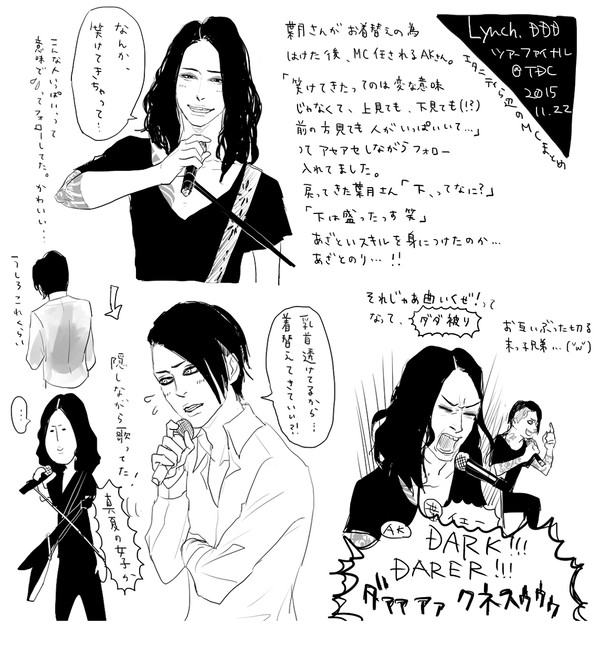 Lynch. DDD
ツアーファイナル
@TDC
2015
11.22
エタニティら辺のMCまとめ
葉月さんがお着替えの為
はけた後、MC任されるAKさん。
「笑けてきたってのは変な意味
じゃなくて、上見ても、下見ても(!?)
前の方見ても人がいっぱいいて…」
ってアセアセしながらフォロー
入れてました。
戻ってきた葉月さん「下、ってなに?」
「下は盛ったっす笑」
あざといスキルを身につけたのか…
あざとのり…!!
なんか、
笑けてきちゃって…
こんな人いっぱい、って
意味で♪ってフォローしてた。かわいい…
うしろこれくらい
乳首透けてるから…
着替えてきていい?!
隠しながら歌ってた!
真夏の女子か
…
それじゃあ曲いくぜ!って
なって、
ダダ被り
お互いぶった切る
末っ子兄弟…('ω')
葉
イェー
AK
DARK!!!
DARER!!!
ダァァァァ クネスゥゥゥ